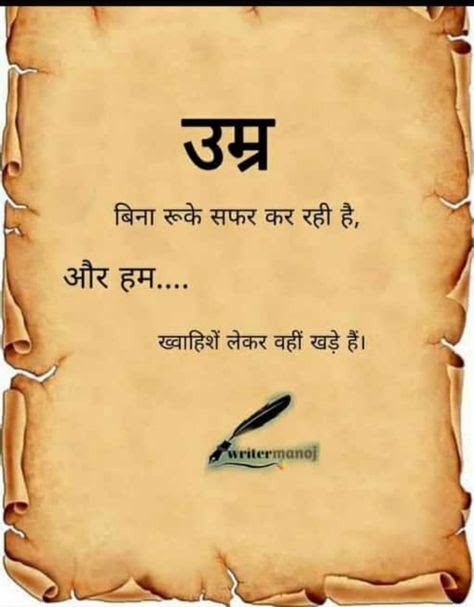 उम्र
बिना रूके सफर कर रही है,
और हम....
ख्वाहिशें लेकर वहीं खड़े हैं।
writermanoj